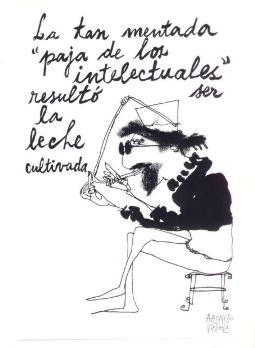 La tan mentada
"paja de los
intelectuales"
resultó ser
la
leche
cultivada